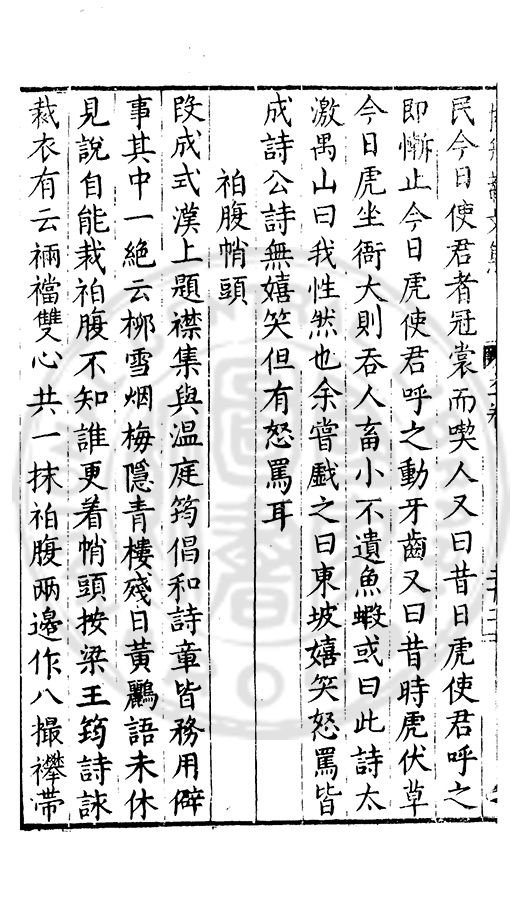 民今日使君者冠裳而喫人又曰昔日虎使君呼之
即慚止今日虎使君呼之動牙齒又曰昔時虎伏草
今日虎坐衙大則吞人畜小不遺魚蝦或曰此詩太
激禺山曰我性然也余嘗戲之曰東坡嬉笑怒罵皆
成詩公詩無嬉笑但有怒罵耳
袙腹帩頭
段成式漢上題襟集與溫庭筠倡和詩章皆務用僻
事其中一絶云柳雪烟梅隱青樓殘日黃鸝語未休
見說自能裁袙腹不知誰更着帩頭按梁王筠詩詠
裁衣有云裲襠雙心共一抹袙腹兩邊作八撮襻帶